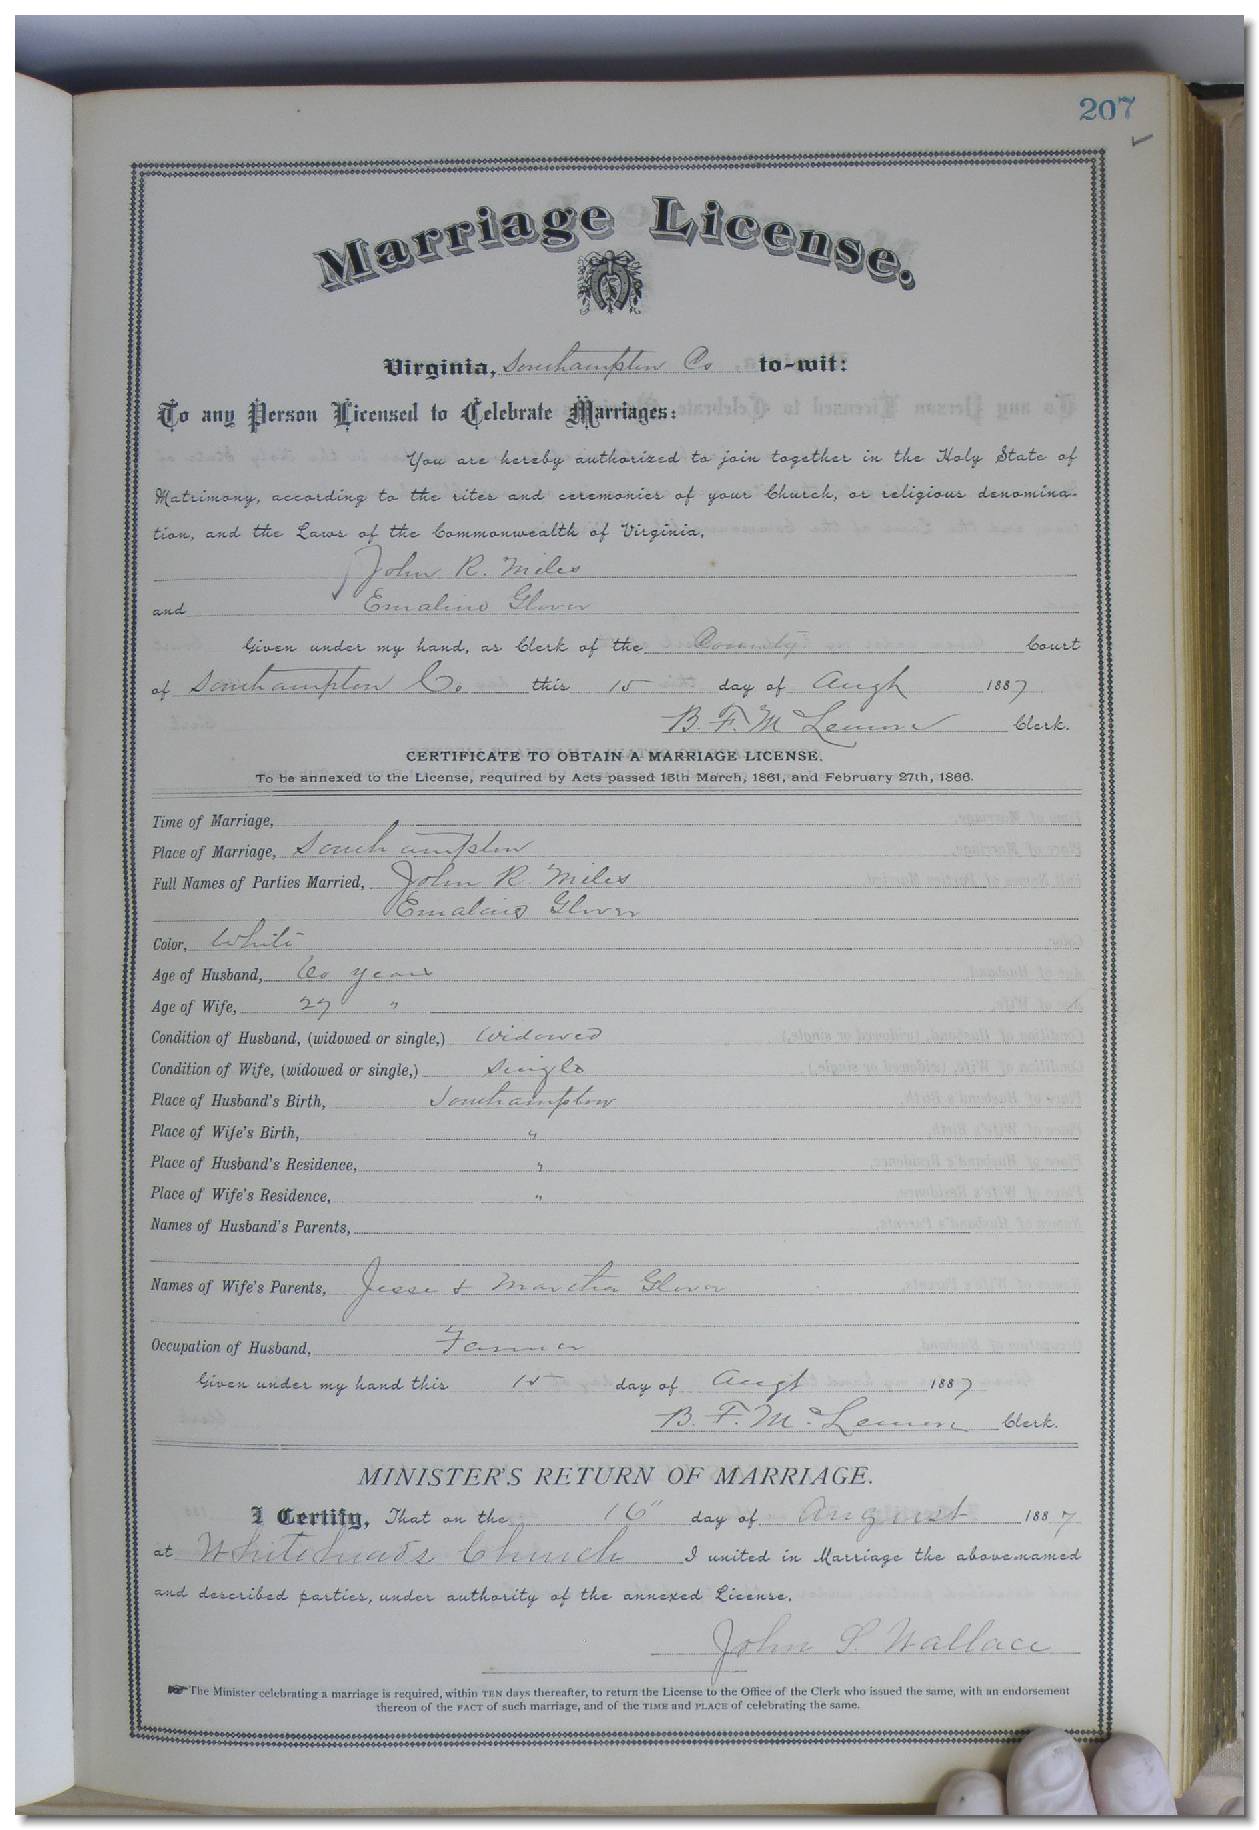 207
Marriage License.
Virginia, Southampton Co to-wit:
To any Person Licensed to Celebrate Marriages:
You are hereby authorized to join together in the Holy State of
Matrimony, according to the rites and ceremonies of your Church, or religious denomina-
tion, and the Laws of the Commonwealth of Virginia,
John R. Miles
and Emaline Glover
Given under my hand, as Clerk of the County Court
of Southampton Co this 15 day of Augt 1887
B. F. McLemore Clerk.
CERTIFICATE TO OBTAIN A MARRIAGE LICENSE.
To be annexed to the License, required by Acts passed 15th March, 1861, and February 27th, 1866.
Time of Marriage,
Place of Marriage, Southampton
Full Names of Parties Married, John R. Miles
Emaline Glover
Color, White
Age of Husband, 60 years
Age of Wife, 27 "
Condition of Husband, (widowed or single,) Widowed
Condition of Wife, (widowed or single,) Single
Place of Husband's Birth, Southampton
Place of Wife's Birth, "
Place of Husband's Residence, "
Place of Wife's Residence, "
Names of Husband's Parents,
Names of Wife's Parents, Jesse & Martha Glover
Occupation of Husband, Farmer
Given under my hand this 15 day of Augt 1887
B. F. McLemore Clerk.
MINISTER'S RETURN OF MARRIAGE.
I Certify, That on the 16" day of August 1887
at Whiteheads Church I united in Marriage the above-named
and described parties, under authority of the annexed License.
John S. Wallace
☛The Minister celebrating a marriage is required, within TEN days thereafter, to return the License to the Office of the Clerk who issued the same, with an endorsement
thereon of the FACT of such marriage, and of the TIME and PLACE of celebrating the same.